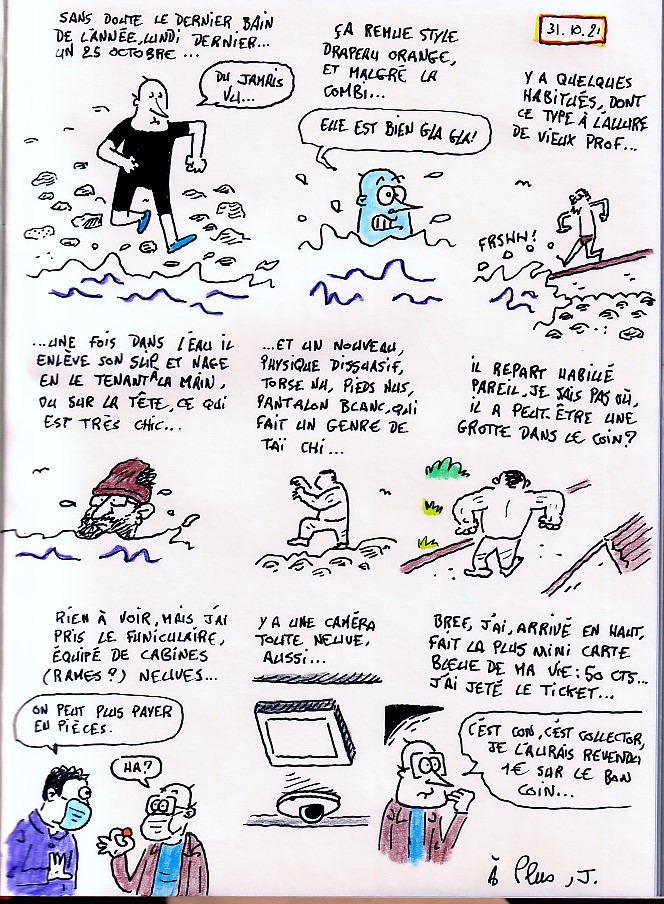 SANS DOUTE LE DERNIER BAIN
DE L'ANNÉE, LUNDI DERNIER...
UN 25 OCTOBRE...
DU JAMAIS
VU...
ÇA REMUE STYLE
DRAPEAU ORANGE,
ET MALGRÉ LA
COMBI...
ELLE EST BIEN GLA GLA!
31.10.21
Y A QUELQUES
HABITUÉS, DONT
CE TYPE À L'ALLURE
DE VIEUX PROF...
FRSHH!
...UNE FOIS DANS L'EAU IL
ENLÈVE SON SLIP ET NAGE
EN LE TENANT À LA MAIN,
OU SUR LA TÊTE, CE QUI
EST TRÈS CHIC...
...ET UN NOUVEAU,
PHYSIQUE DISSUASIF,
TORSE NU, PIEDS NUS,
PANTALON BLANC, QUI
FAIT UN GENRE DE
TAÏ CHI...
IL REPART HABILLÉ
PAREIL, JE SAIS PAS OÙ,
IL A PEUT-ÊTRE UNE
GROTTE DANS LE COIN?
RIEN À VOIR, MAIS J'AI
PRIS LE FUNICULAIRE,
ÉQUIPÉ DE CABINES
(RAMES?) NEUVES...
ON PEUT PLUS PAYER
EN PIÈCES.
HA?
Y A UNE CAMÉRA
TOUTE NEUVE,
AUSSI...
BREF, J'AI, ARRIVÉ EN HAUT,
FAIT LA PLUS MINI CARTE
BLEUE DE MA VIE: 50 CTS...
J'AI JETÉ LE TICKET...
C'EST CON, C'EST COLLECTOR,
JE L'AURAIS REVENDU
1€ SUR LE BON
COIN...
À Plus, J.